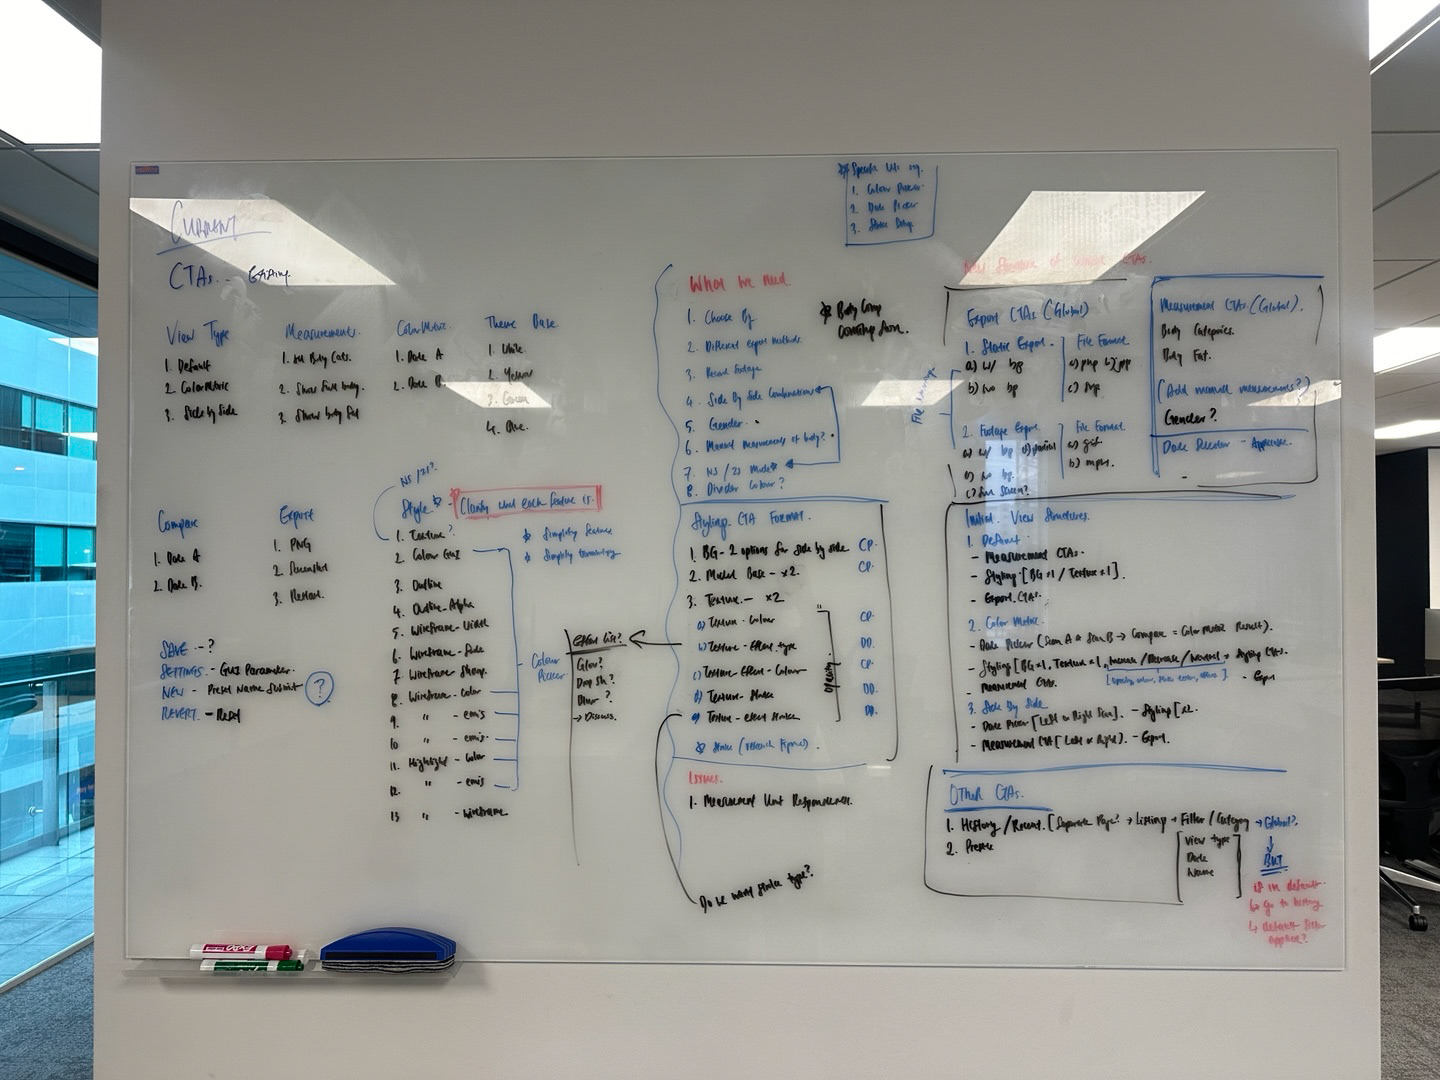 CURRENT
CTAs. - Existing.
View Type
1. Default
2. ColorMetric
3. Side by Side
Measurements.
1. All Body Cats.
2. Show Full body.
3. Show body Fat
ColorMetric.
1. Date A
2. Date B.
Theme Base.
1. White
2. Yellow
3. Green
4. Blue.
Compare
1. Date A
2. Date B.
Export
1. PNG
2. Screenshot
3. Record.
SAVE - ?
SETTINGS. - GUI Parameter.
NEW - Preset Name Submit
?
REVERT. - Reset
NS / 2S?
Style * - Clarity what each feature is.
* Simplify feature
* Simplify terminology
1. Texture?
2. Colour GUI
3. Outline
4. Outline - Alpha
5. Wireframe - Width
6. Wireframe - Side
7. Wireframe - Strong.
8. Wireframe - Color
9. " - emis
10 " - emis.
11. Highlight - Color
12. " - emis
13 " - wireframe
Colour Picker
Effect list?
Glow?
Drop Sh?
Blur?
→ Discuss.
* Specific UIs eg.
1. Colour Picker.
2. Date Picker
3. Stroke
What we need
1. Choose Bg
2. Different export methods
3. Record Footage
4. Side By Side Combinations
5. Gender.
6. Manual Measurements of body?
7. NS / 2S Mode *
8. Divider Colour?
* Body Comp Coming Soon.
Styling CTA FORMAT.
1. BG - 2 options for side by side CP.
2. Model Base - x2 CP.
3. Texture. - x2
a) Texture - Colour CP
b) Texture - Effect type DD.
c) Texture - Effect - Colour CP.
d) Texture - Stroke DD.
e) Texture - effect stroke DD.
Opacity
* Stroke (research Figma).
Issues.
1. Measurement Unit Responsiveness.
Do we want stroke type?
New Structure of CTAs.
Export CTAs (Global)
1. Static Export.
a) w/ bg
b) no bg
File Format
a) png b) jpg
c)
2. Footage Export
a) w/ bg
b) no bg.
c) full screen?
File Format.
a) gif
b) mp4.
Measurement CTAs (Global).
Body Categories.
Body Fat.
(Add manual measurements?)
Gender?
Date Selector - Appearance.
Initial View Structures.
1. Default.
- Measurement CTAs.
- Styling [BG x1 / Texture x1].
- Export CTAs.
2. Color Metric.
- Date Picker (Scan A & Scan B → Compare = Color Metric Result).
- Styling [BG x1, Texture x1, Increase / Decrease / Neutral → Styling CTAs.
- Measurement CTAs.
- Export
3. Side By Side
- Date Picker [Left or Right Scan]. - Styling [x2.
- Measurement CTA [Left or Right]. - Export.
Other CTAs.
1. History / Recent. [Separate Page? → Listing → Filter / Category → Global?
2. Presets
View type
Date
Name
↓
BUT
if in default.
↳ go to history
↳ default filter applied?